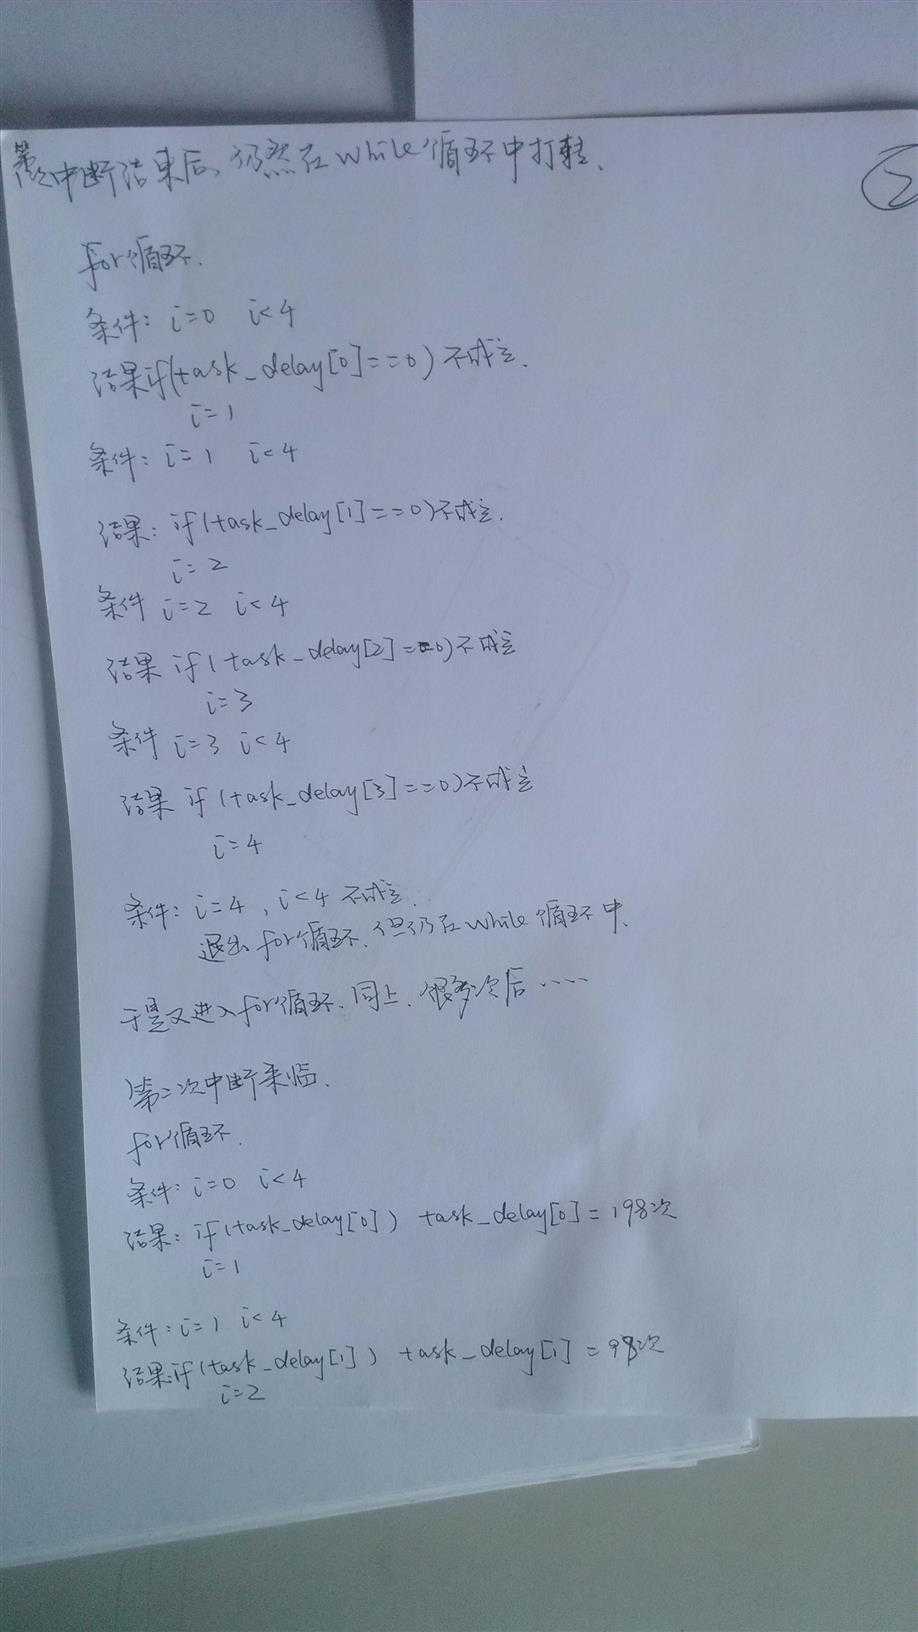 第一次中断结束后,仍然在while循环中打转.
②
for循环.
条件: i=0 i<4
结果if(task_delay[0]==0)不成立.
i=1
条件: i=1 i<4
结果: if(task_delay[1]==0)不成立.
i=2
条件 i=2 i<4
结果 if(task_delay[2]==0)不成立
i=3
条件 i=3 i<4
结果 if(task_delay[3]==0)不成立
i=4
条件: i=4, i<4 不成立.
退出for循环.但仍在while循环中.
于是又进入for循环.同上.很多次后.....
第二次中断来临.
for循环.
条件: i=0 i<4
结果: if(task_delay[0]) task_delay[0]=198次
i=1
条件: i=1 i<4
结果:if(task_delay[1]) task_delay[1]=98次
i=2